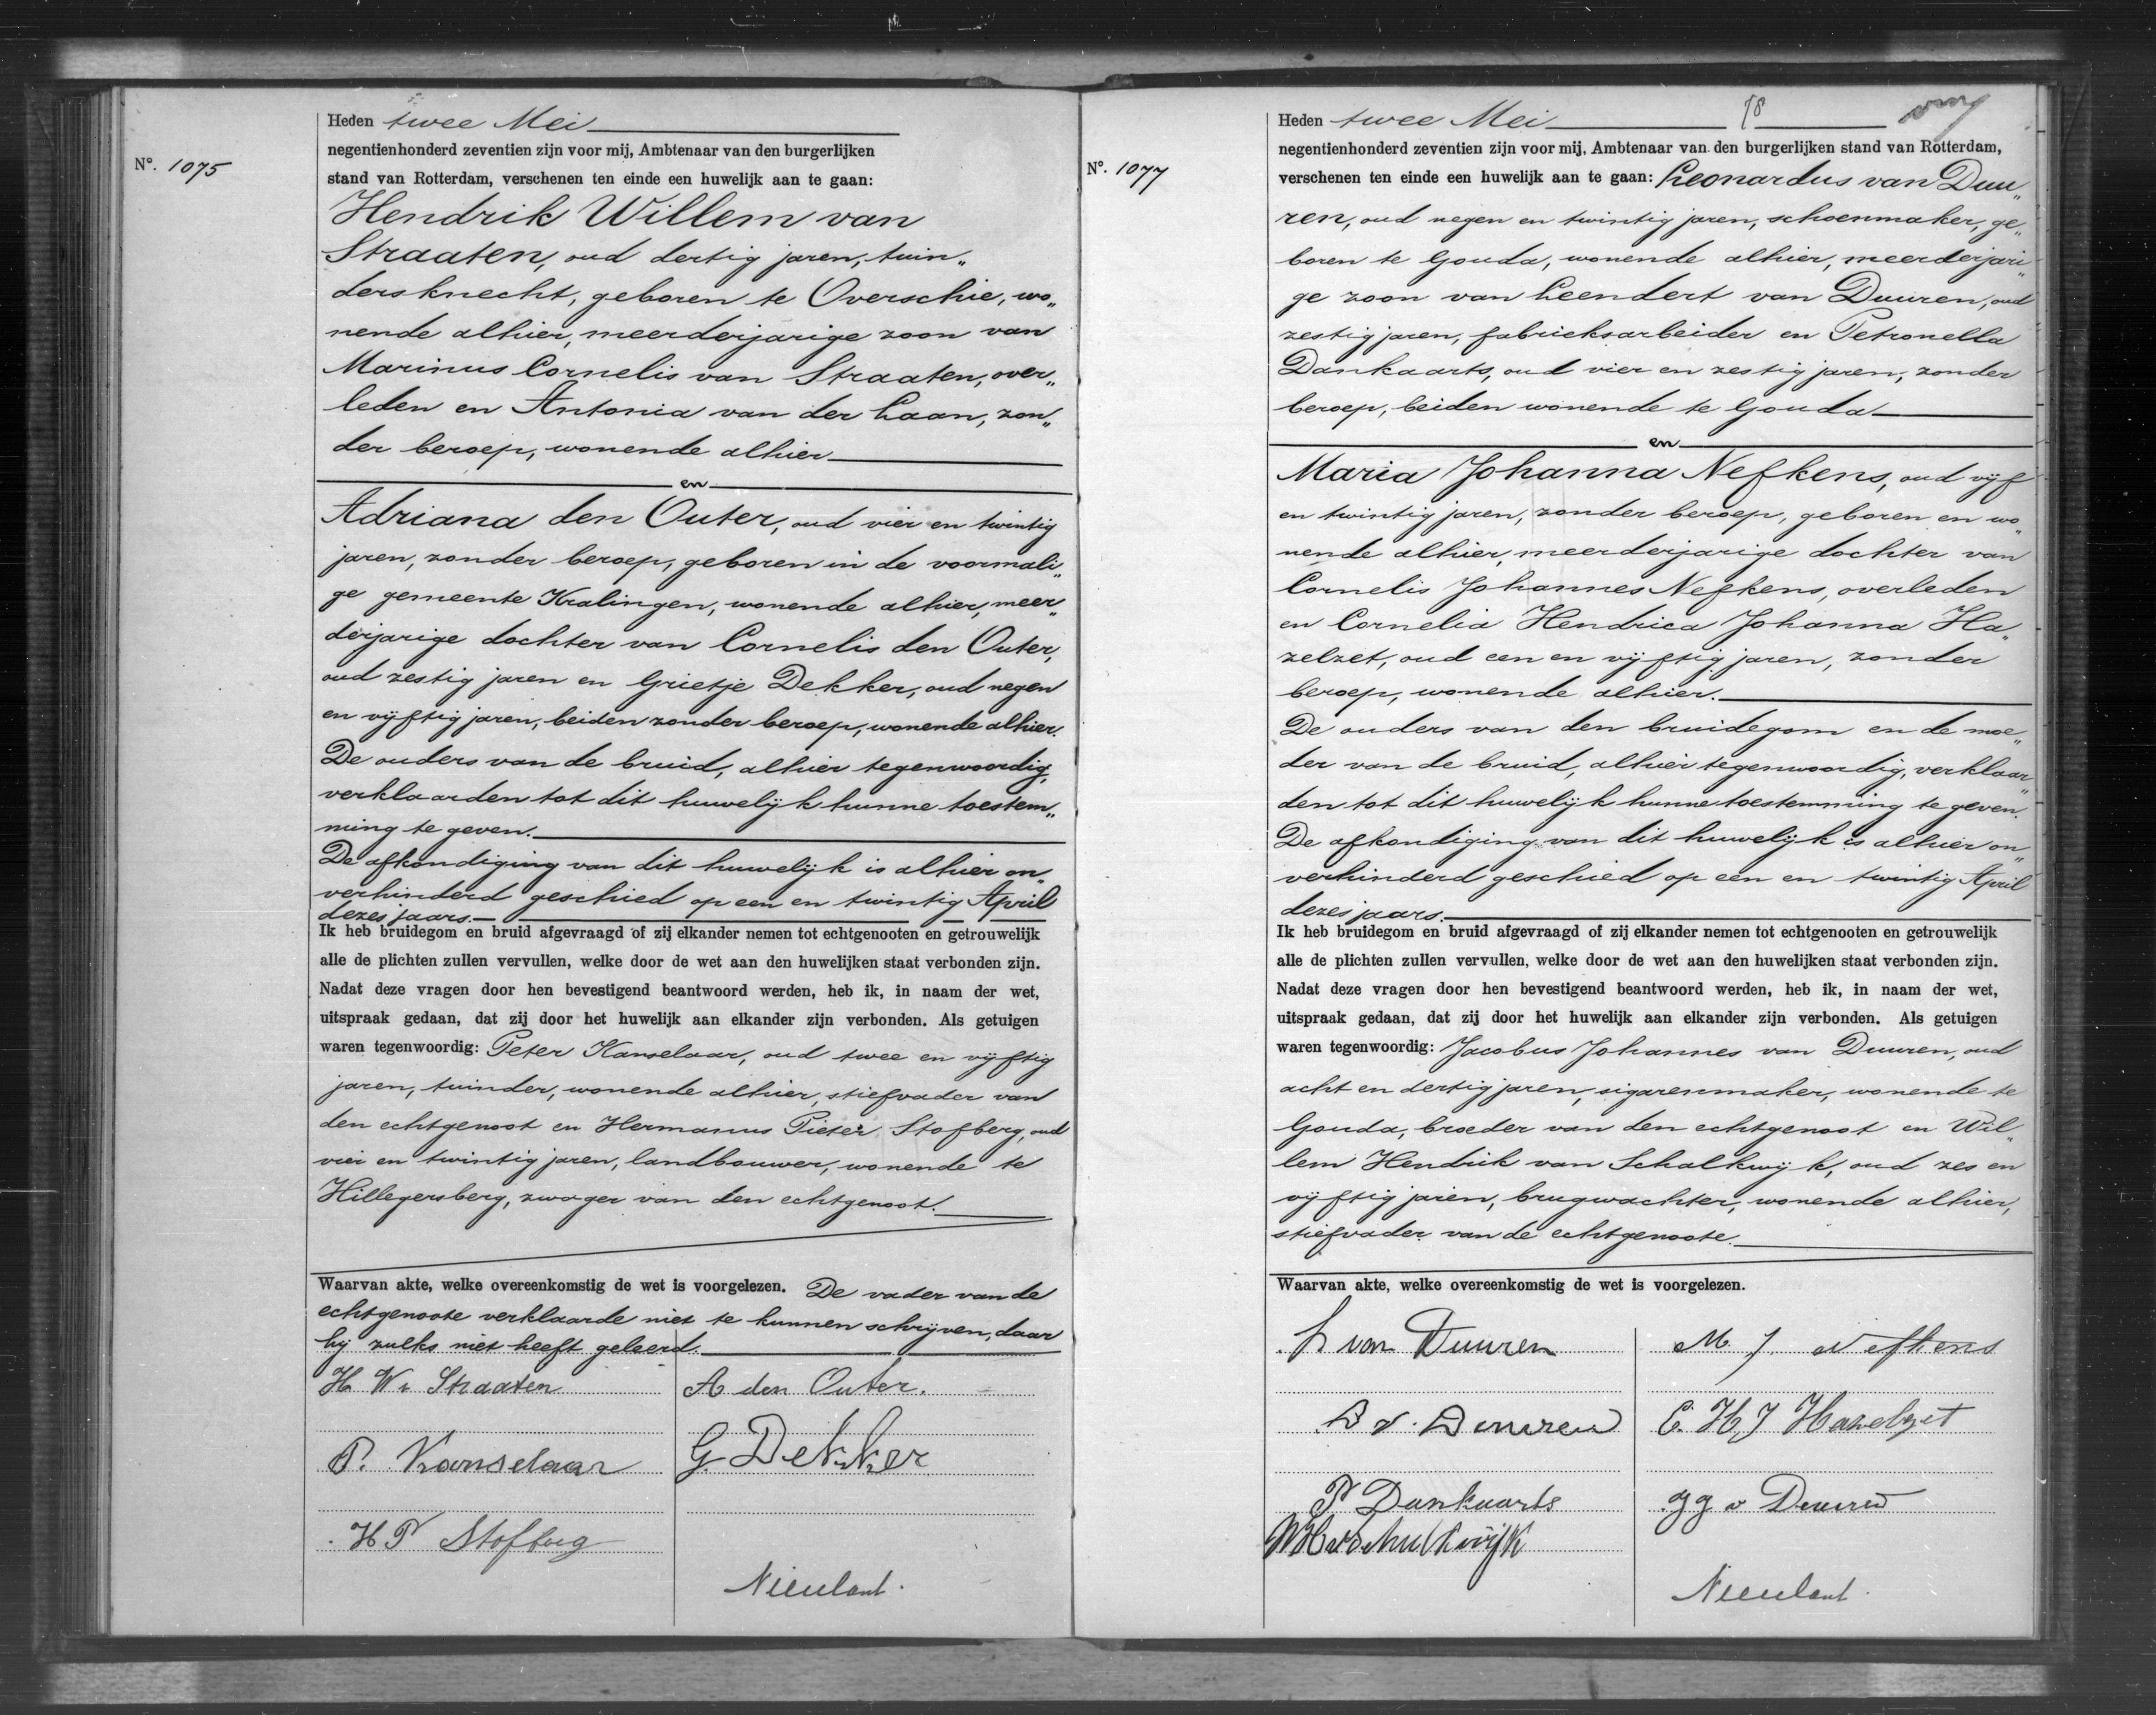 Nº. 1075
Heden twee Mei
negentienhonderd zeventien zijn voor mij, Ambtenaar van den burgerlijken
stand van Rotterdam, verschenen ten einde een huwelijk aan te gaan:
Hendrik Willem van
Straaten, oud dertig jaren, tuin„
dersknecht, geboren te Overschie, wo„
nende alhier, meerderjarige zoon van
Marinus Cornelis van Straaten, over„
leden en Antonia van der Laan, zon„
der beroep, wonende alhier
en
Adriana den Outer, oud vier en twintig
jaren, zonder beroep, geboren in de voormali„
ge gemeente Kralingen, wonende alhier, meer„
derjarige dochter van Cornelis den Outer,
oud zestig jaren en Grietje Dekker, oud negen
en vijftig jaren, beiden zonder beroep, wonende alhier.
De ouders van de bruid, alhier tegenwoordig,
verklaarden tot dit huwelijk hunne toestem„
ming te geven.
De afkondiging van dit huwelijk is alhier on„
verhinderd geschied op een en twintig April
dezes jaars.
Ik heb bruidegom en bruid afgevraagd of zij elkander nemen tot echtgenooten en getrouwelijk
alle de plichten zullen vervullen, welke door de wet aan den huwelijken staat verbonden zijn.
Nadat deze vragen door hen bevestigend beantwoord werden, heb ik, in naam der wet,
uitspraak gedaan, dat zij door het huwelijk aan elkander zijn verbonden. Als getuigen
waren tegenwoordig: Peter Kanselaar, oud twee en vijftig
jaren, tuinder, wonende alhier, stiefvader van
den echtgenoot en Hermanus Pieter Stofberg, oud
vier en twintig jaren, landbouwer, wonende te
Hillegersberg, zwager van den echtgenoot.
Waarvan akte, welke overeenkomstig de wet is voorgelezen. De vader van de
echtgenoote verklaarde niet te kunnen schrijven, daar
hij zulks niet heeft geleerd.
H. W. v. Straaten A den Outer.
P. Kanselaar G. Dekker
H P Stofberg
Nieulant.
Nº. 1077
Heden twee Mei 78
negentienhonderd zeventien zijn voor mij, Ambtenaar van den burgerlijken stand van Rotterdam,
verschenen ten einde een huwelijk aan te gaan: Leonardus van Duu„
ren, oud negen en twintig jaren, schoenmaker, ge„
boren te Gouda, wonende alhier, meerderjari„
ge zoon van Leendert van Duuren, oud
zestig jaren, fabrieksarbeider en Petronella
Dankaarts, oud vier en zestig jaren, zonder
beroep, beiden wonende te Gouda
en
Maria Johanna Nefkens, oud vijf
en twintig jaren, zonder beroep, geboren en wo„
nende alhier, meerderjarige dochter van
Cornelis Johannes Nefkens, overleden
en Cornelia Hendrica Johanna Ha„
zelzet, oud een en vijftig jaren, zonder
beroep, wonende alhier.
De ouders van den bruidegom en de moe„
der van de bruid, alhier tegenwoordig, verklaar„
den tot dit huwelijk hunne toestemming te geven.
De afkondiging van dit huwelijk is alhier on„
verhinderd geschied op een en twintig April
dezes jaars.
Ik heb bruidegom en bruid afgevraagd of zij elkander nemen tot echtgenooten en getrouwelijk
alle de plichten zullen vervullen, welke door de wet aan den huwelijken staat verbonden zijn.
Nadat deze vragen door hen bevestigend beantwoord werden, heb ik, in naam der wet,
uitspraak gedaan, dat zij door het huwelijk aan elkander zijn verbonden. Als getuigen
waren tegenwoordig: Jacobus Johannes van Duuren, oud
acht en dertig jaren, sigarenmaker, wonende te
Gouda, broeder van den echtgenoot en Wil„
lem Hendrik van Schalkwijk, oud zes en
vijftig jaren, brugwachter, wonende alhier,
stiefvader van de echtgenoote.
Waarvan akte, welke overeenkomstig de wet is voorgelezen.
L van Duuren M. J. Nefkens
L v. Duuren C. H. J Hazelzet
P Dankaarts J J v Duuren
W H v Schalkwijk
Nieulant.